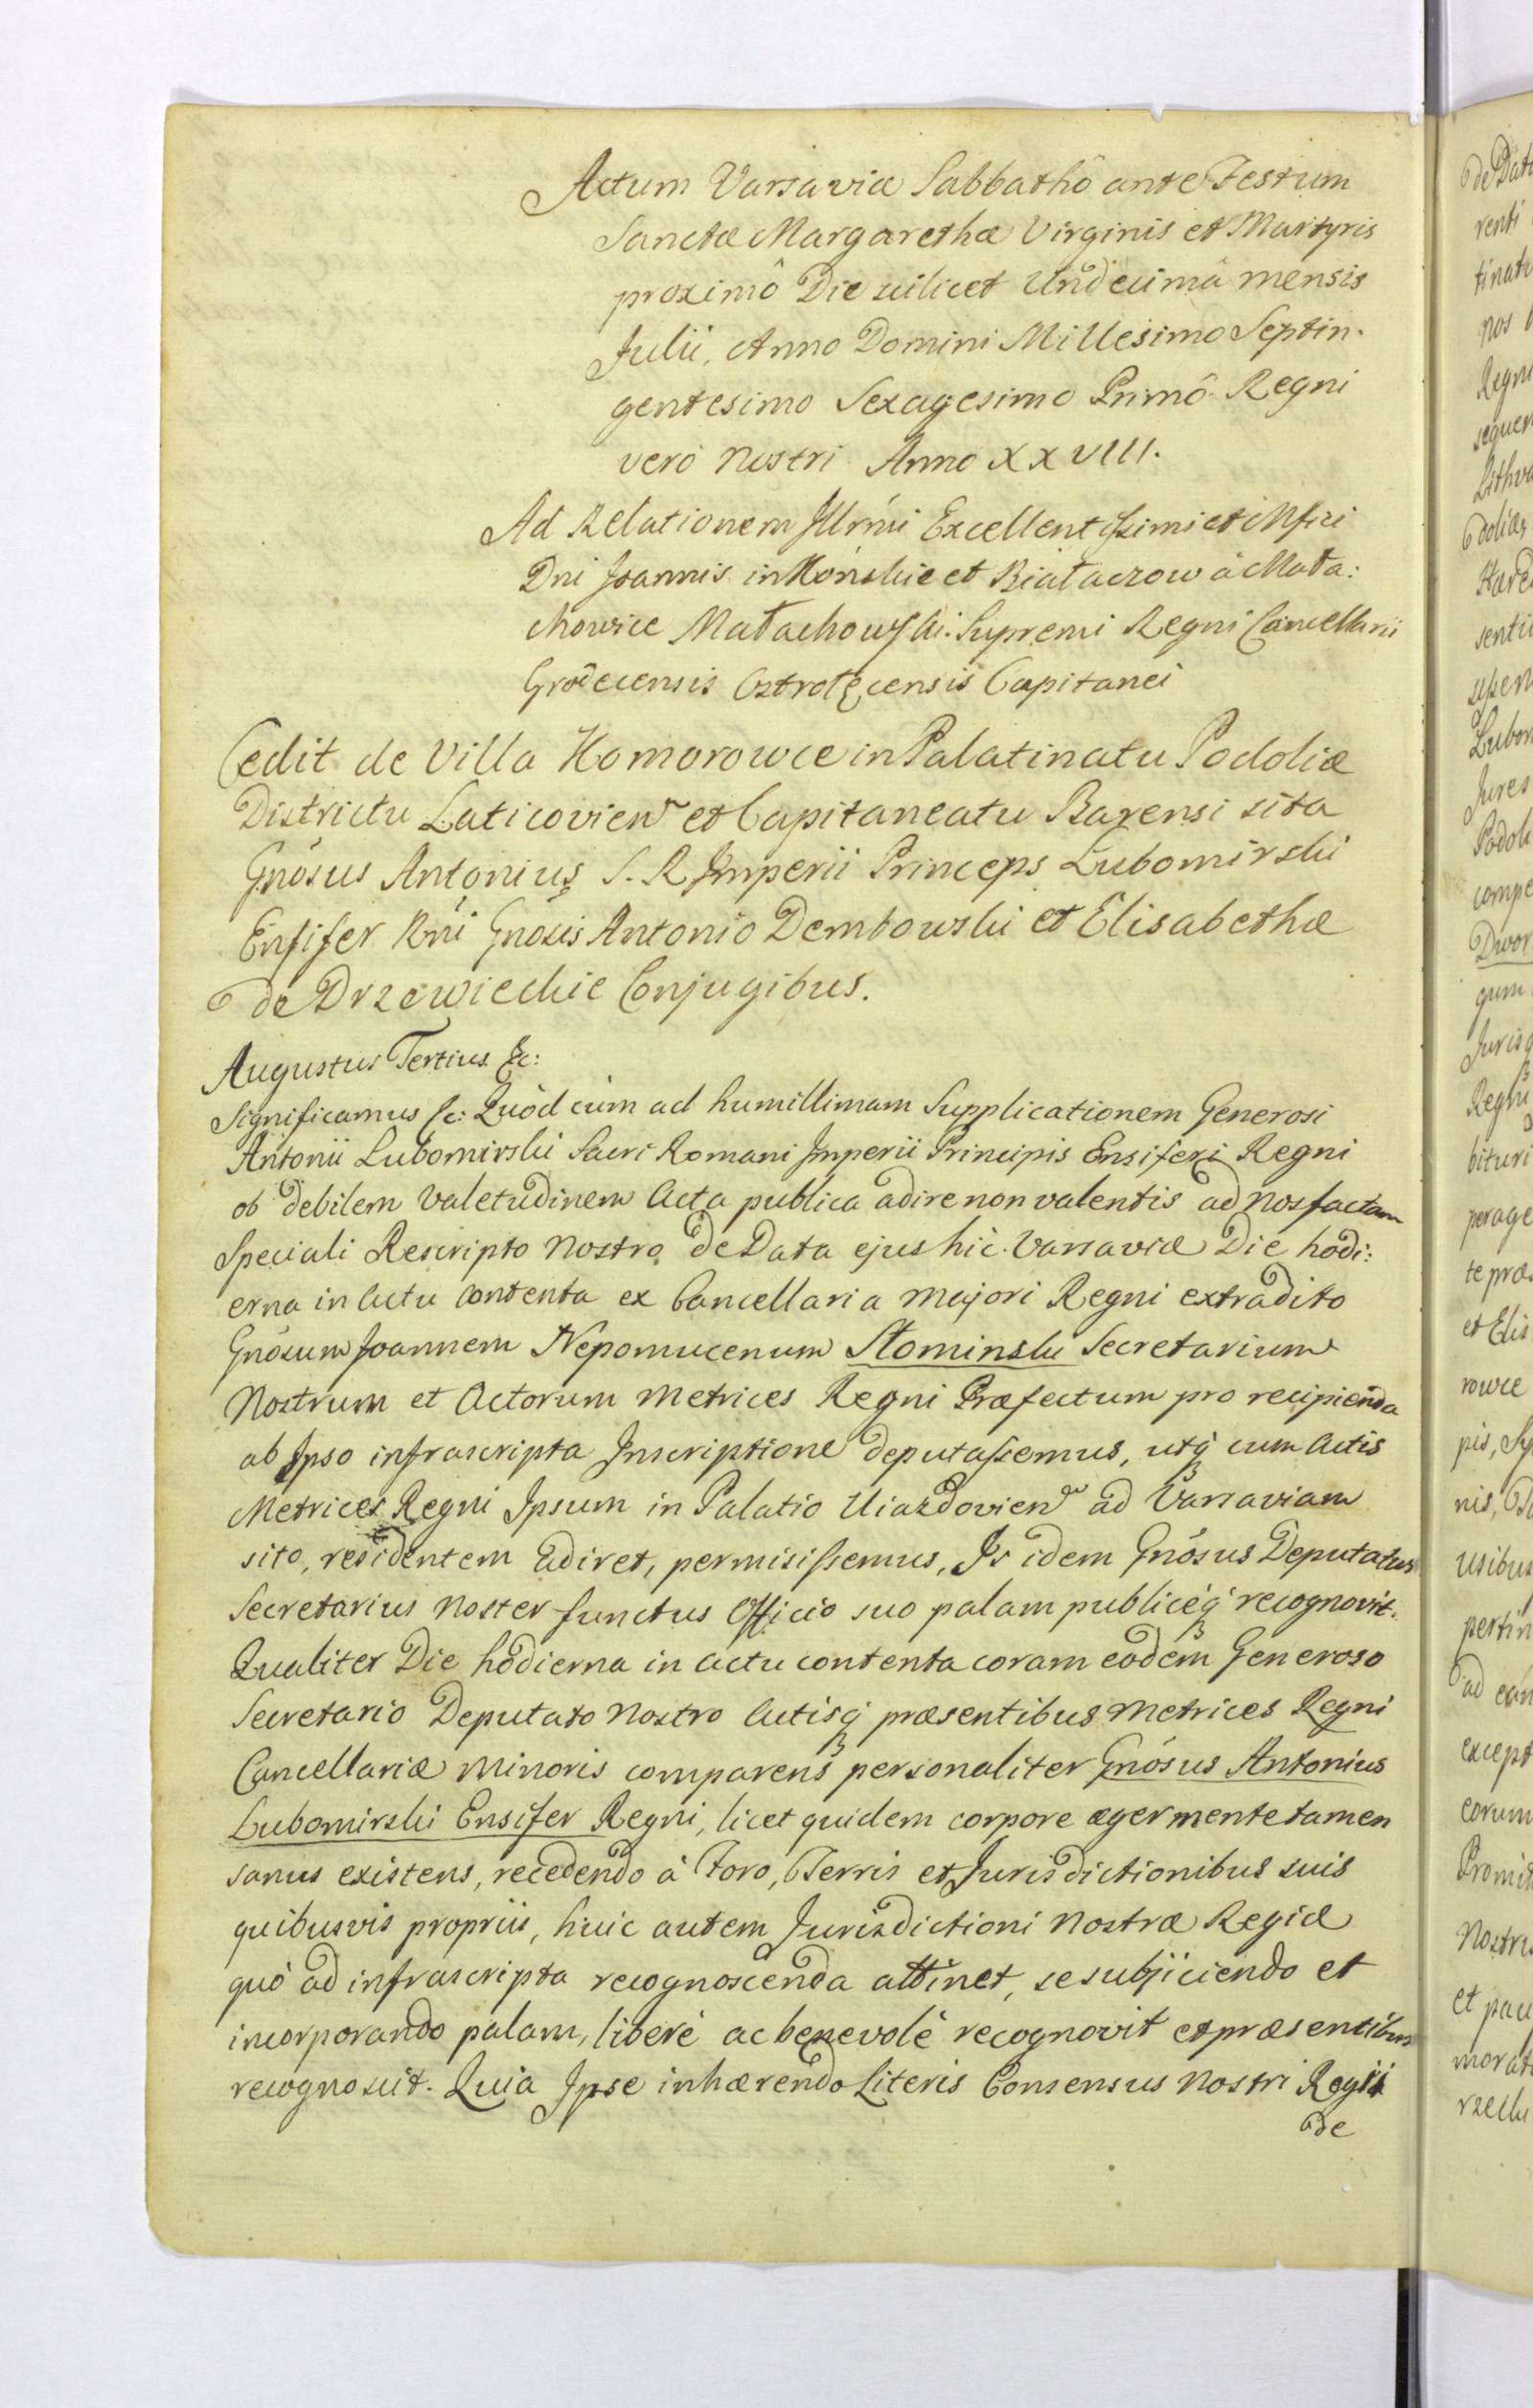 Actum Varsaviæ Sabbathô ante Festum
Sanctæ Margarethæ Virginis et Martyris
proximô Die scilicet Undecimâ mensis
Julii, Anno Domini Millesimo Septin-
gentesimo Sexagesimo Primô Regni
verò Nostri Anno XXVIII.
Ad Relationem Illrmi Excellentissimi et Mfici
Dni Joannis in Końskie et Białaczow à Mała:
chowice Małachowski Supremi Regni Cancellarii
Grodecensis Ostrołęcensis Capitanei
Cedit de Villa Komorowce in Palatinatu Podoliæ
Districtu Laticovien et Capitaneatu Barensi sita
Gnosus Antonius S. R Imperii Princeps Lubomirski
Ensifer Rni Gnosis Antonio Dembowski et Elisabethæ
de Drzewieckie Conjugibus.
Augustus Tertius &c:
Significamus &c: Quòd cùm ad humillimam Supplicationem Generosi
Antonii Lubomirski Sacri Romani Imperii Principis Ensiferi Regni
ob debilem Valetudinem Acta publica adire non valentis ad Nos factam
Speciali Rescripto Nostro de Data ejus hìc Varsaviæ Die hodi:
erna in Actu contenta ex Cancellaria Majori Regni extradito
Gnosum Joannem Nepomucenum Słominski Secretarium
Nostrum et Actorum Metrices Regni Præfectum pro recipienda
ab Ipso infrascripta Inscriptione deputassemus, utq cum Actis
Metrices Regni Ipsum in Palatio Uiazdovien ad Varsaviam
sito, residentem adiret, permisissemus, Is idem Gnosus Deputatus
Secretarius Noster functus Officio suo palam publicéq recognovit.
Qualiter Die hodierna in actu contenta coram eodem Generoso
Secretario Deputato Nostro Actisq præsentibus Metrices Regni
Cancellariæ Minoris comparens personaliter Gnosus Antonius
Lubomirski Ensifer Regni, licet quidem corpore æger mente tamen
sanus existens, recedendo à Foro, Terris et Jurisdictionibus suis
quibusvis propriis, huic autem Jurisdictioni Nostræ Regiæ
quò ad infrascripta recognoscenda attinet, se subjiciendo et
incorporando palam, liberè ac benevolè recognovit et præsentibus
recognoscit. Quia Ipse inhærendo Literis Consensus Nostri Regii
de